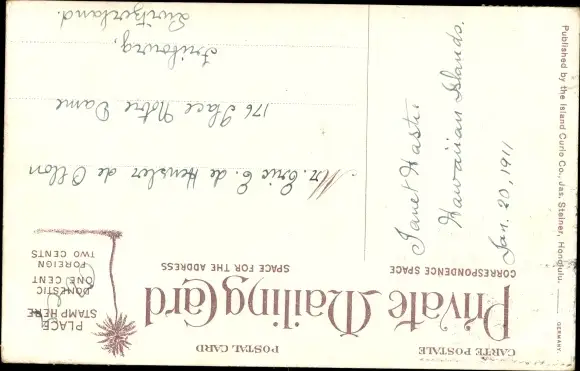 CARTE POSTALE
POSTAL CARD
Private Mailing Card
CORRESPONDENCE SPACE
SPACE FOR THE ADDRESS
PLACE
STAMP HERE
DOMESTIC
ONE CENT
FOREIGN
TWO CENTS
Janet Hastie
Hawaiian Islands.
Jan. 20, 1911
Mr. Eric E. de
176 Place Notre Dame
Fribourg,
Switzerland.
Published by the Island Curio Co., Jas. Steiner, Honolulu.
GERMANY.